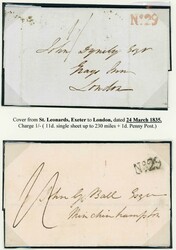 No. 29
John Dyneley Esqr
Grays Inn
London
Cover from St. Leonards, Exeter to London, dated 24 March 1835.
Charge 1/- ( 11d. single sheet up to 230 miles + 1d. Penny Post.)
No. 25
John G Ball Esqre
Minchinhampton